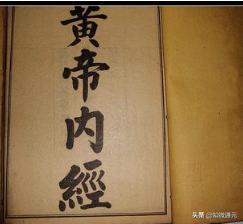 黄帝内經
头条 @知微通元